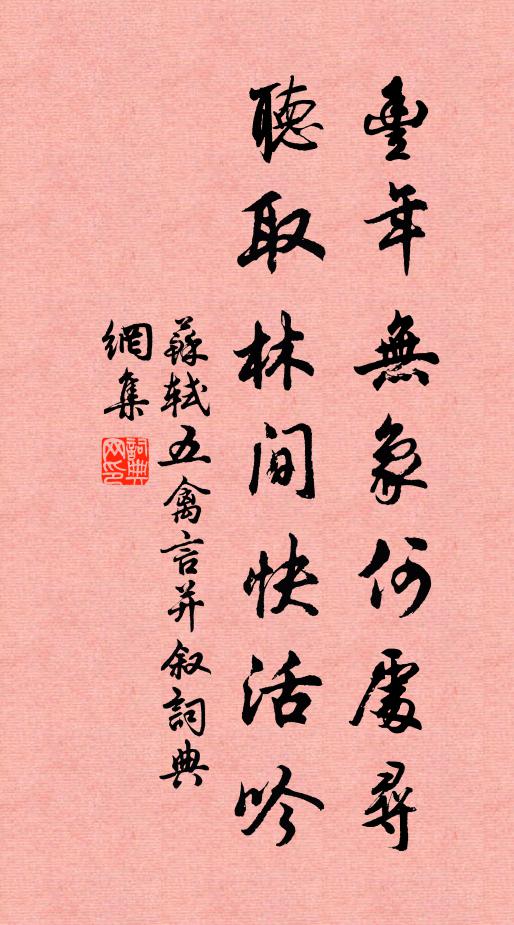 豐年無象何處尋
聽取林間快活吟
蘇軾五禽言并叙詞典
網集
詞典
网印